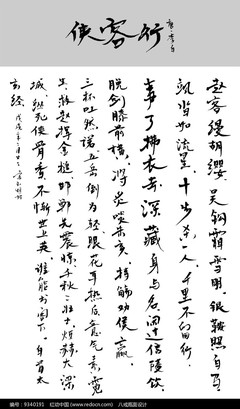 侠客行
唐李白
赵客缦胡缨吴钩霜雪明银鞍照白马
飒沓如流星十步杀一人千里不留行
事了拂衣去深藏身与名闲过信陵饮
脱剑膝前横将炙啖朱亥持觞劝侯嬴
三杯吐然诺五岳倒为轻眼花耳热后意气素霓
生救赵挥金槌邯郸先震惊千秋二壮士烜赫大梁
城纵死侠骨香不惭世上英谁能书阁下白首太
玄经
编号:9340191 红动中国 (www.redocn.com)